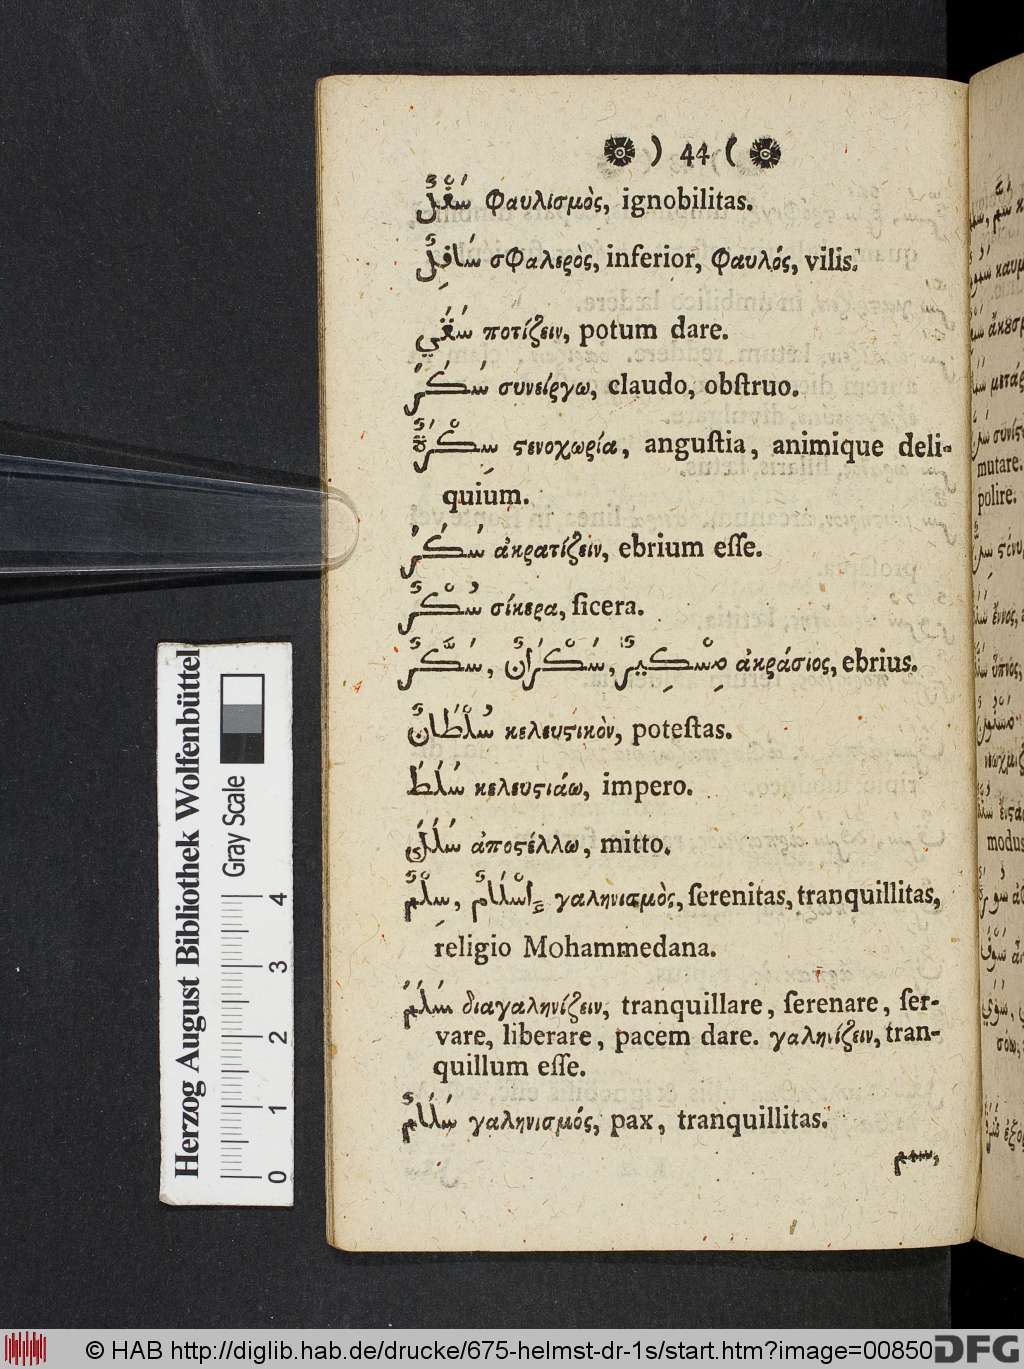 ) 44 (
سَفْلٌ φαυλισμὸς, ignobilitas.
سَافِلٌ σφαλερὸς, inferior, φαυλός, vilis.
سَقَي ποτίζειν, potum dare.
سَكَرَ συνείργω, claudo, obſtruo.
سِكْرَةٌ ϛενοχωρία, anguſtia, animique deli-
quium.
سَكَرَ ἀκρατίζειν, ebrium eſſe.
سُكْرٌ σίκερα, ſicera.
سَكَّرٌ, سَكْرَانٌ, مِسْكِيرٌ ἀκράσιος, ebrius.
سُلْطَانٌ κελευϛικὸν, poteſtas.
سَلَطَ κελευϛιάω, impero.
ἀποϛέλλω, mitto.
سِلْمٌ, إِسْلَامٌ γαληνισμὸς, ſerenitas, tranquillitas,
religio Mohammedana.
سَلَمَ διαγαληνίζειν, tranquillare, ſerenare, ſer-
vare, liberare, pacem dare. γαληνίζειν, tran-
quillum eſſe.
سَلَامٌ γαληνισμός, pax, tranquillitas.
Herzog August Bibliothek Wolfenbüttel
Gray Scale
0 1 2 3 4
© HAB http://diglib.hab.de/drucke/675-helmst-dr-1s/start.htm?image=00850
DFG